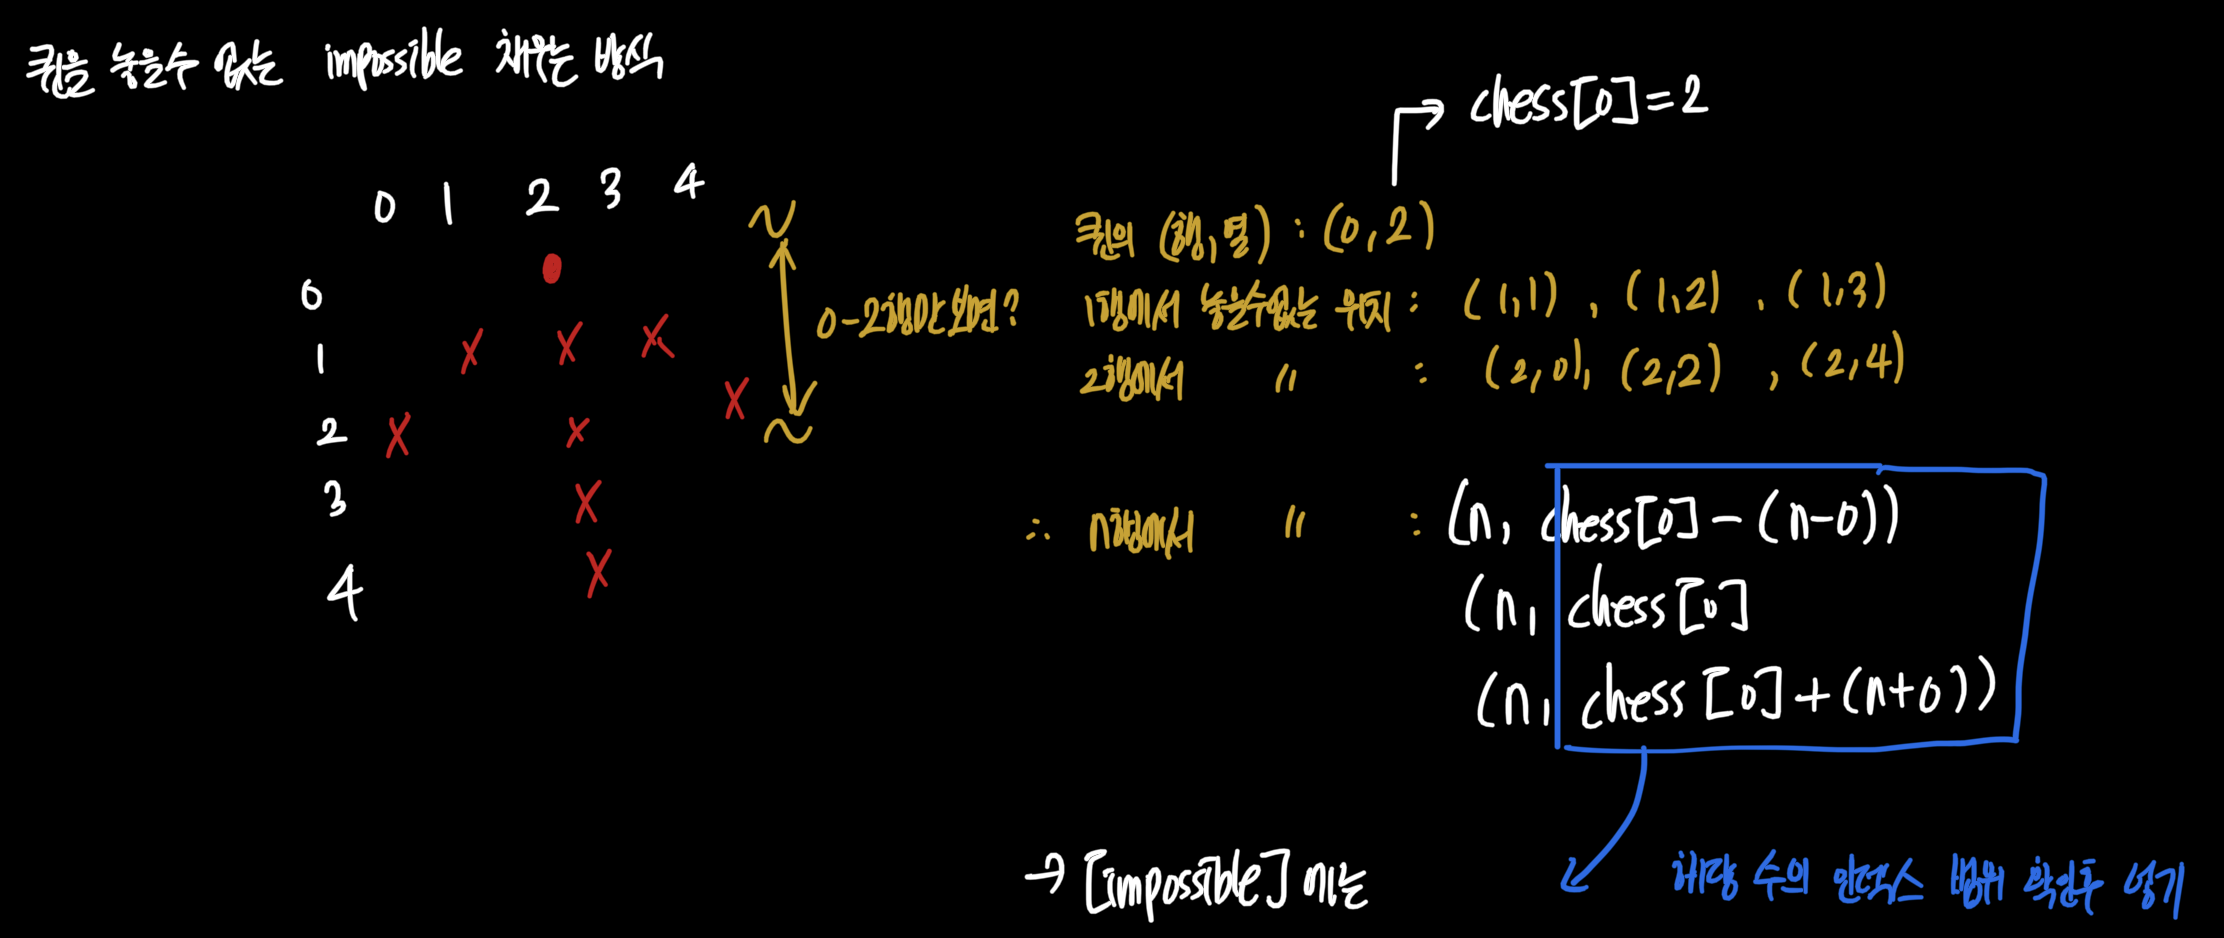 퀸을 놓을수 없는 impossible 채우는 방식
chess[0]=2
0 1 2 3 4
0
1 X X X
2 X X X
3 X
4 X
0-2행만 보면?
퀸의 (행,열) : (0,2)
1행에서 놓을수없는 위치 : (1,1) , (1,2) , (1,3)
2행에서 〃 : (2,0), (2,2) , (2,4)
∴ n행에서 〃 : (n, chess[0]-(n-0))
(n, chess[0]
(n, chess[0]+(n+0))
→ [impossible] 에는
해당 수의 인덱스 범위 확인후 넣기